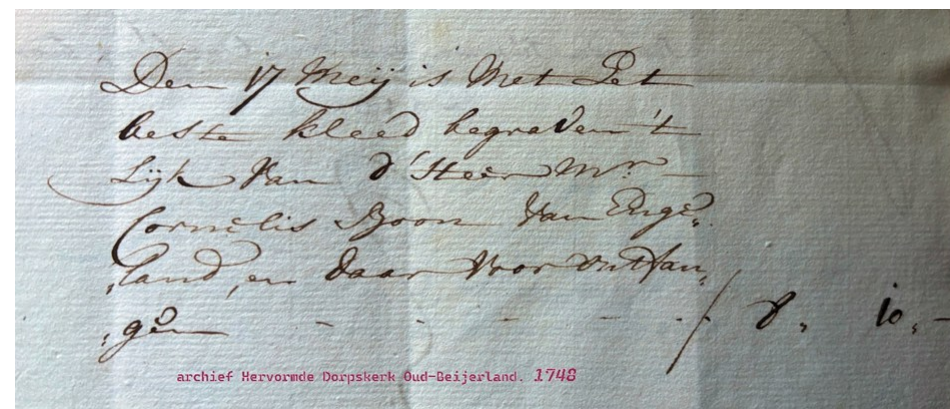 Den 17 Meij is Met Het
beste kleed begraven 't
Lijk Van d'Heer Mr.
Cornelis Boon Van Enge„
„land, en daar Voor Ontfan„
„gen - - - - - / 8„ 10„ -
archief Hervormde Dorpskerk Oud-Beijerland. 1748